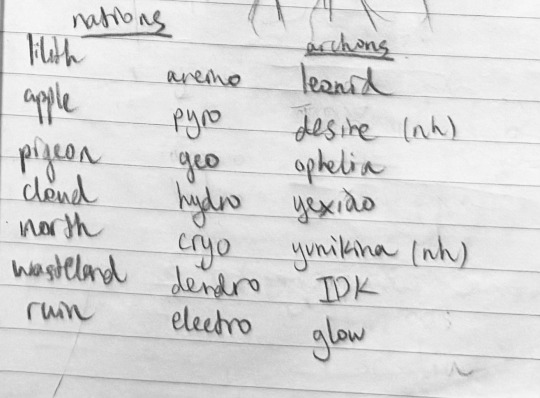 nations archons
lilith anemo leonid
apple pyro desire (nh)
pigeon geo ophelia
cloud hydro yexiao
north cryo yunikina (nh)
wasteland dendro IDK
ruin electro glow